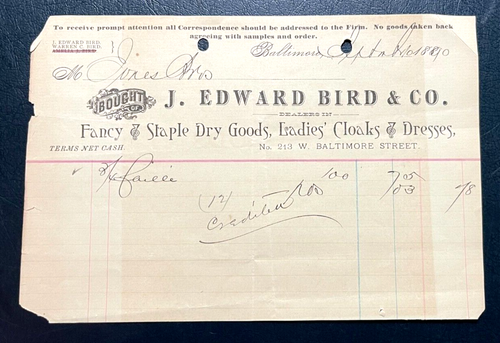 To receive prompt attention all Correspondence should be addressed to the Firm. No goods taken back
agreeing with samples and order.
J. EDWARD BIRD.
WARREN C. BIRD.
Baltimore, 1890
M Jones Bros
BOUGHT OF J. EDWARD BIRD & CO.
DEALERS IN
Fancy & Staple Dry Goods, Ladies' Cloaks & Dresses,
TERMS NET CASH.
No. 213 W. BALTIMORE STREET.
100 7 05
(12) 03 78
Credited